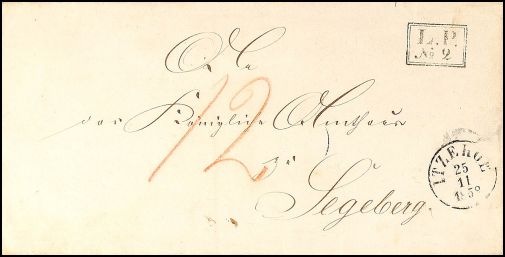 L. P.
No 2
An
das Königliche Amthaus
zu
Segeberg.
12
ITZEHOE
25
11